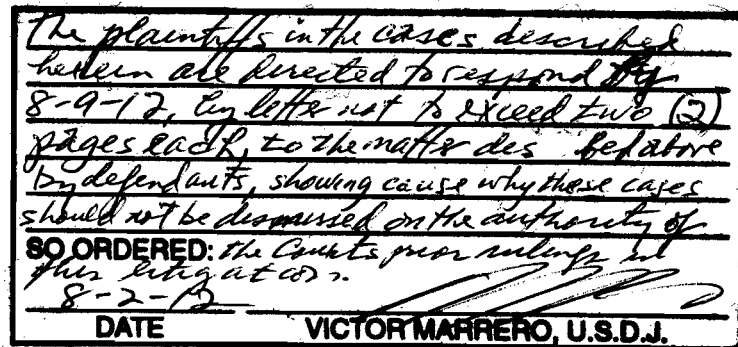 The plaintiffs in the cases described
herein are directed to respond by
8-9-12, by letter not to exceed two (2)
pages each, to the matter des bed above
by defendants, showing cause why these cases
should not be dismissed on the authority of
SO ORDERED: the Court's prior rulings in
this litigation.
8-2-12
DATE VICTOR MARRERO, U.S.D.J.